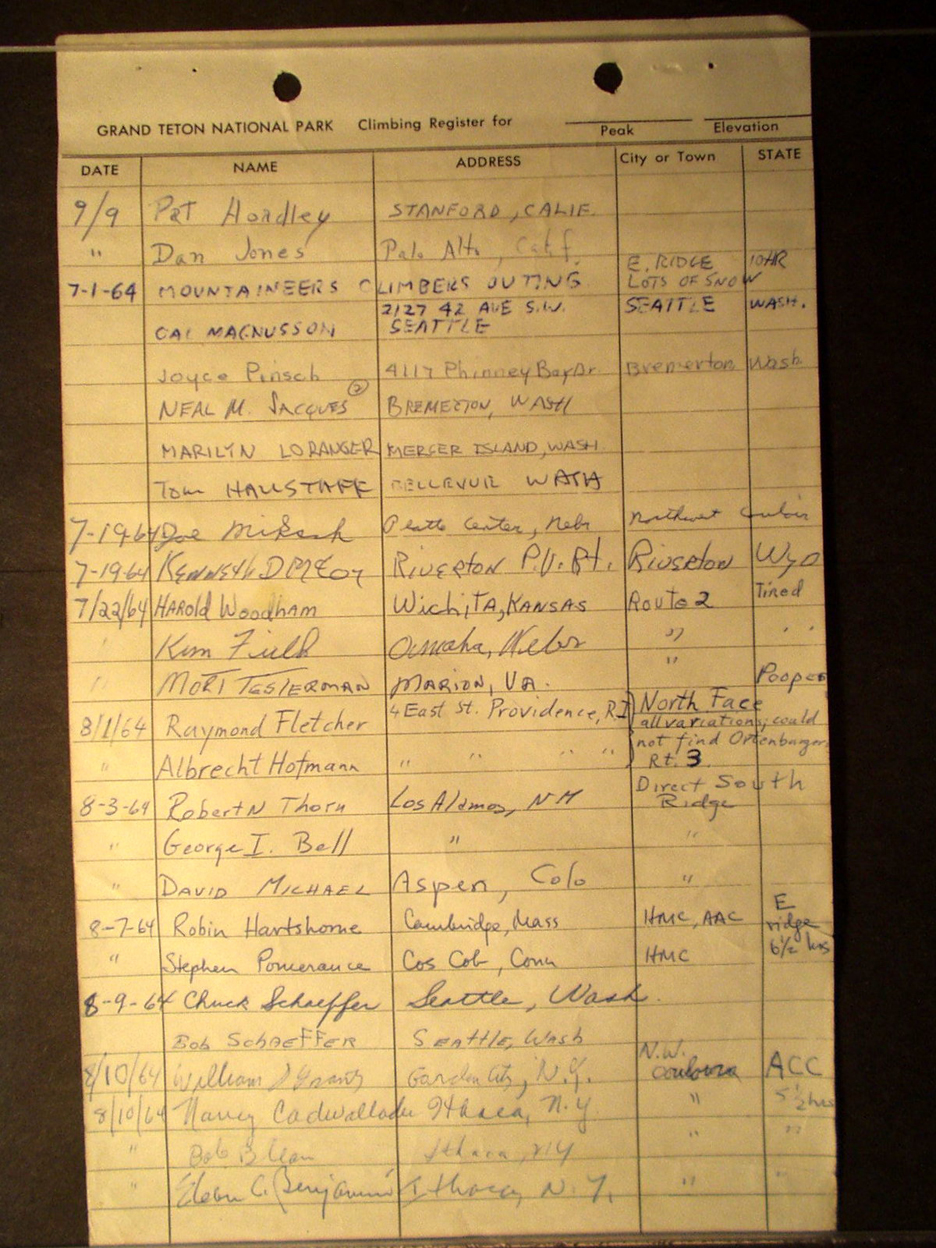 GRAND TETON NATIONAL PARK Climbing Register for
Peak Elevation
DATE NAME ADDRESS City or Town STATE
9/9 Pat Hoadley STANFORD, CALIF.
" Dan Jones Palo Alto, Calif.
E. RIDGE 10HR
7-1-64 MOUNTAINEERS CLIMBERS OUTING LOTS OF SNOW
2127 42 AVE S.W. SEATTLE WASH.
CAL MAGNUSSON SEATTLE
Joyce Pinsch 4117 Phinney Bay Dr Bremerton Wash
NEAL M. JACQUES (2) BREMERTON, WASH
MARILYN LORANGER MERCER ISLAND, WASH.
Tom HALLSTAFF BELLEVUE WASH
7-1964 Joe Platte Center, Nebr Northwest
7-1964 KENNETH D RIVERTON P.U. Rt. RIVERTON Wyo
7/22/64 HAROLD Woodham WichiTA, KANSAS Route 2 Tired
" Kim Omaha, Nebr " "
" MORT TESTERMAN MARION, VA. " Pooped
8/1/64 Raymond Fletcher 4 East St. Providence, RI North Face
all variations; could
not find Ortenburger
" Albrecht Hofmann " " " " Rt. 3
8-3-64 Robert N Thorn Los Alamos, NM Direct South
Ridge
" George I. Bell " "
" DAVID MICHAEL Aspen, Colo "
8-7-64 Robin Hartshorne Cambridge, Mass HMC, AAC E
ridge
" Stephen Pomerance Cos Cob, Conn HMC 6½ hrs
8-9-64 Chuck Schaeffer Seattle, Wash.
Bob SCHAEFFER SEATTLE, WASH
8/10/64 William Garden City, N.Y. N.W. ACC
8/10/64 Nancy Cadwallader Ithaca, N.Y. " 5½ hrs
" Bob Ithaca, NY " "
" C. Benjamin Ithaca, N.Y. " "